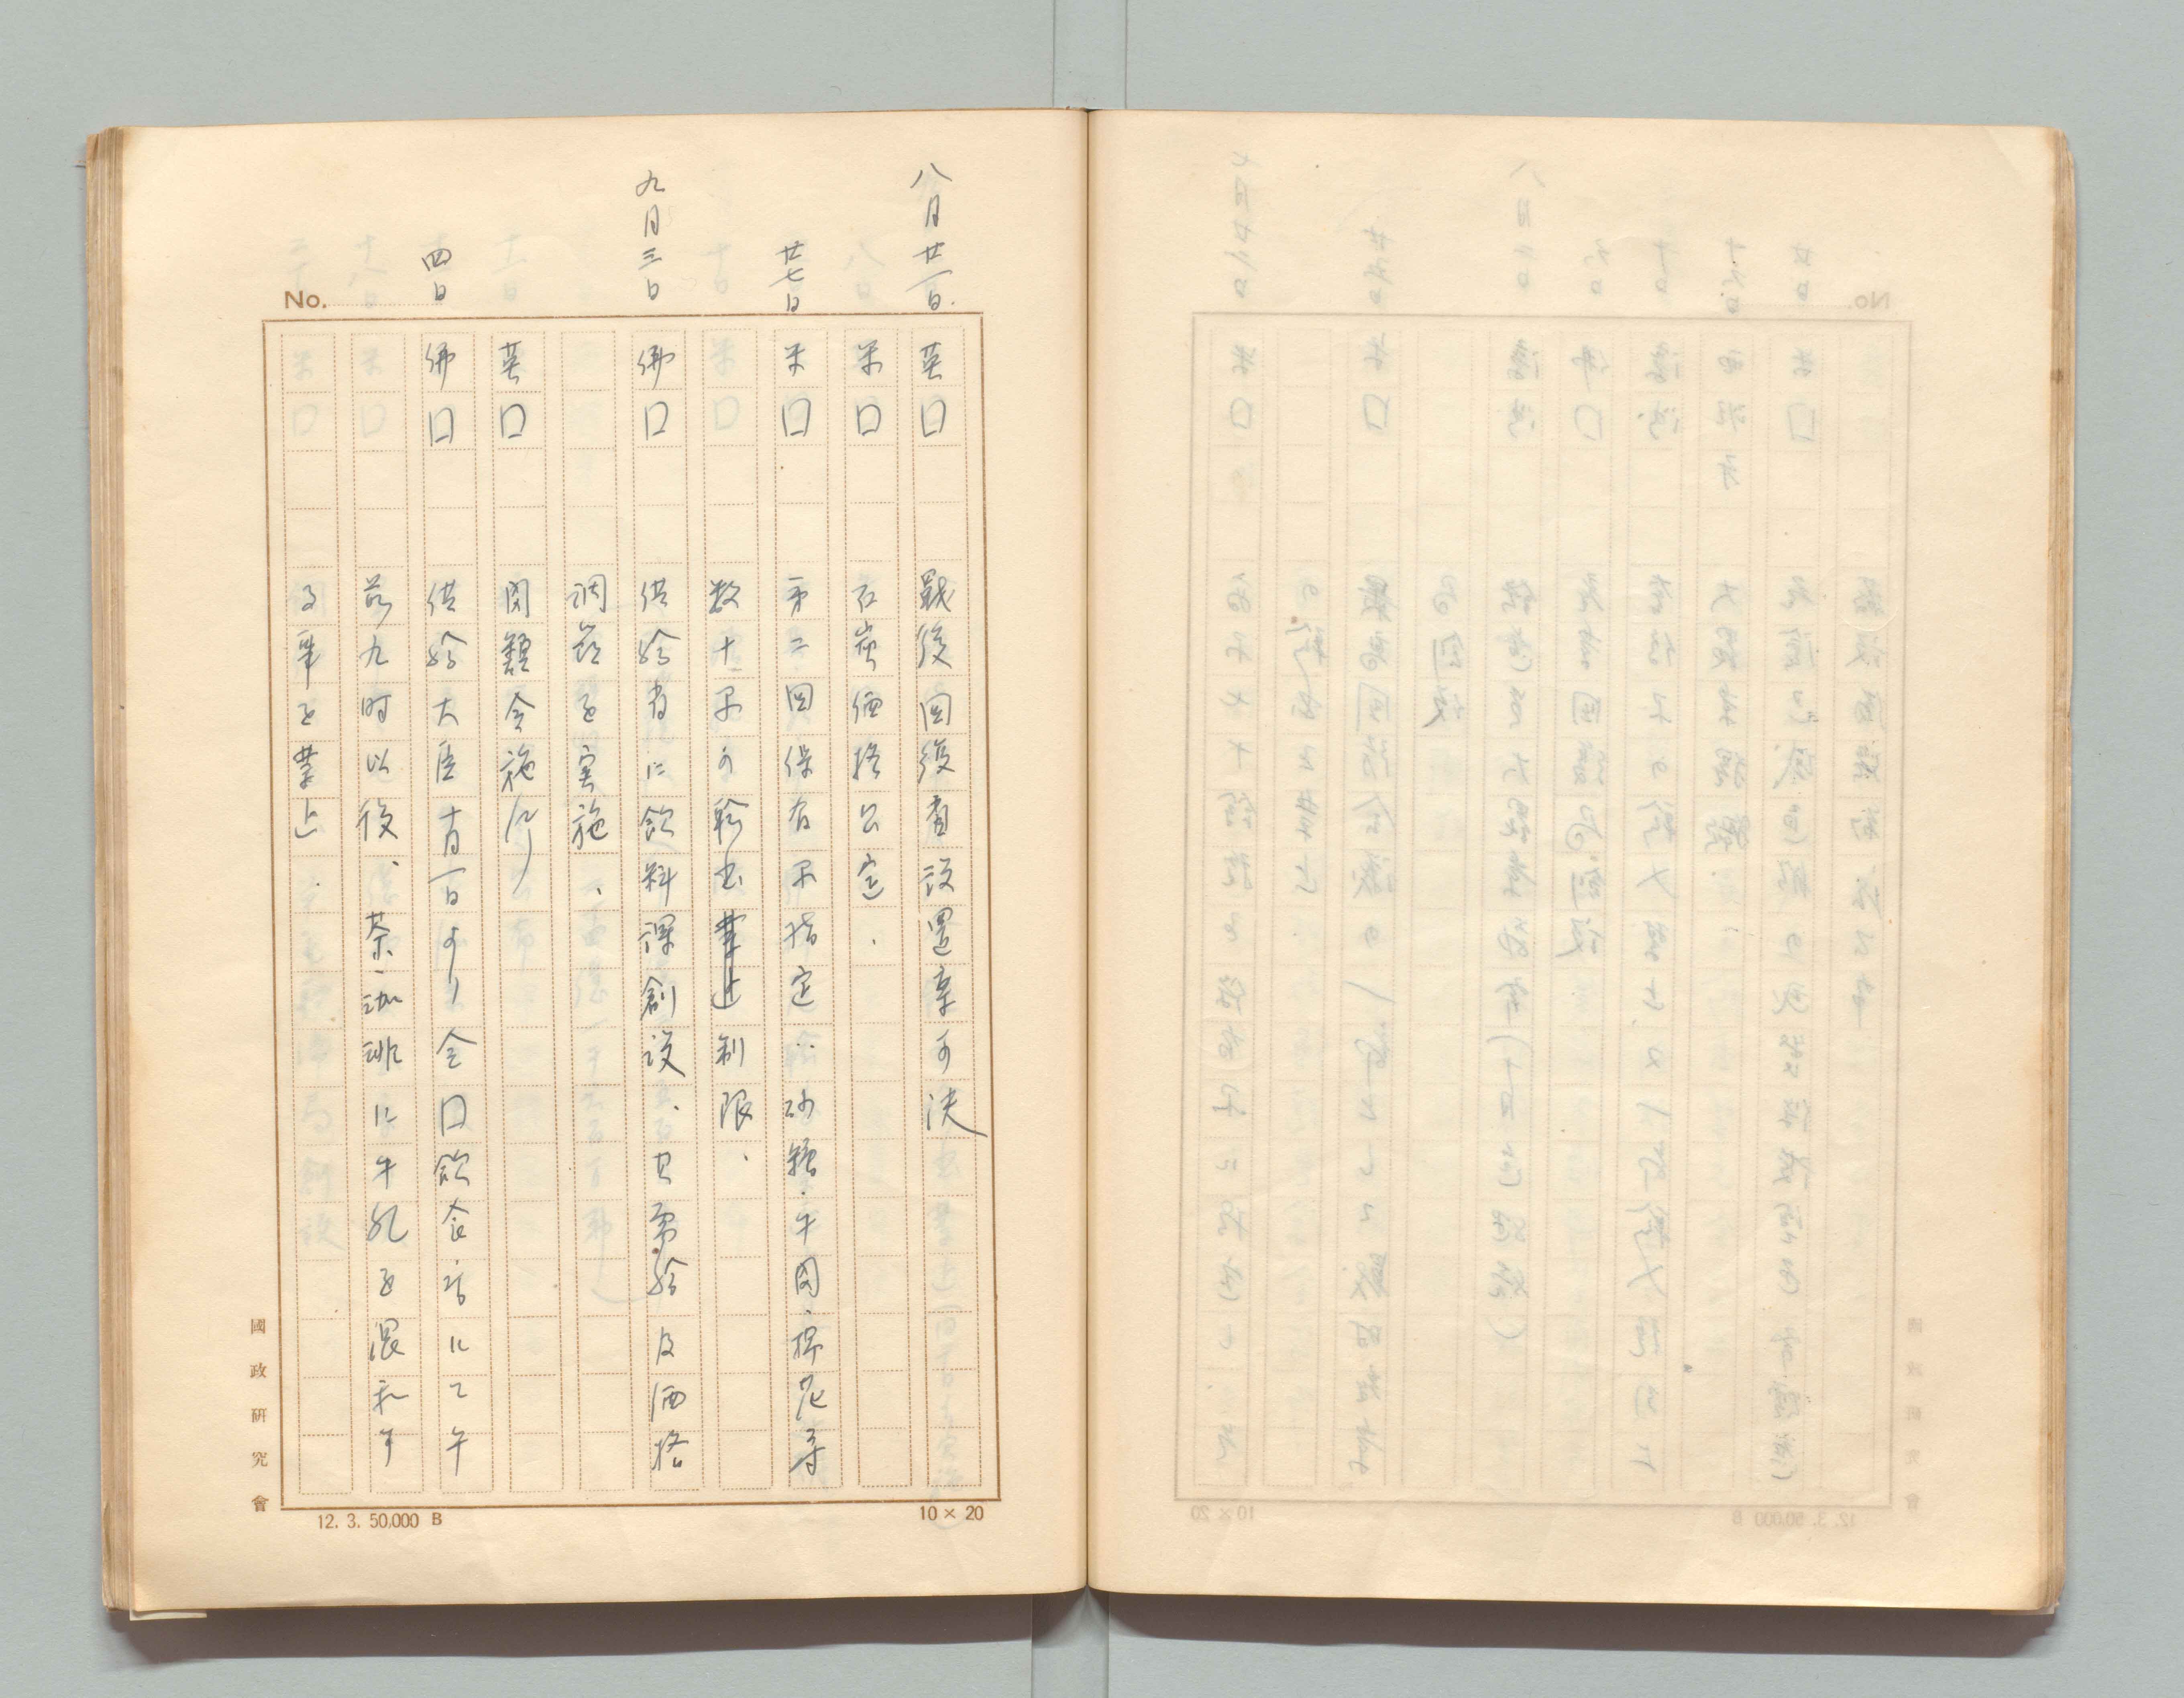 八月廿一日 英囗 戰後囬復省設置案可決
米囗 石炭価格公定.
廿七日 米囗 第二囬保有品指定…砂糖.牛肉.棉花等
数十品の輸出禁止制限、
九月三日 佛囗 供給省に飲料課創設、其需給及価格
調節を実施、
英囗 閉館令施行
四日 佛囗 供給大臣十月一日より全囗飲食店にて午
前九時以後、茶、珈琲に牛乳を混和す
る事を禁止.
No.
國政研究會
12. 3. 50,000 B
10 × 20